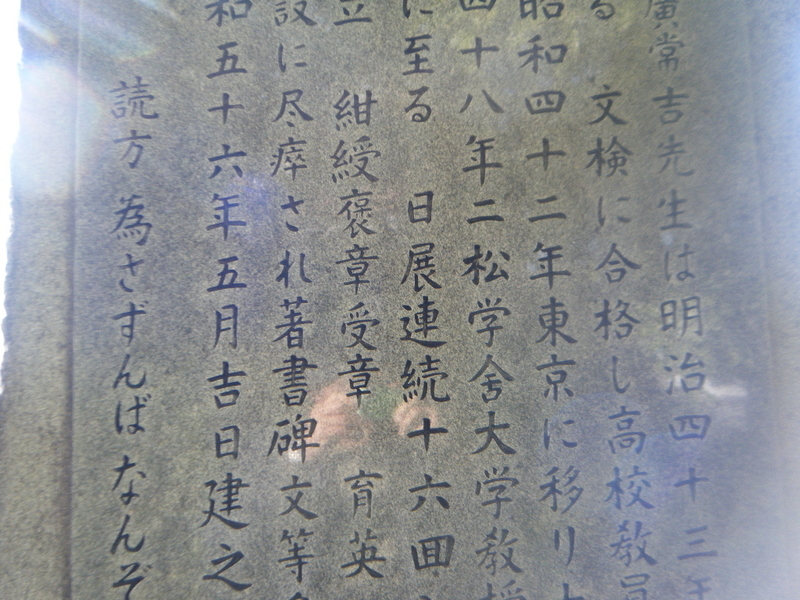 廣常吉先生は明治四十三年
る 文検に合格し高校教員
昭和四十二年東京に移り
四十八年二松学舎大学教授
に至る 日展連続十六回
立 紺綬褒章受章 育英
設に尽瘁され著書碑文等
和五十六年五月吉日建之
読方 為さずんばなんぞ